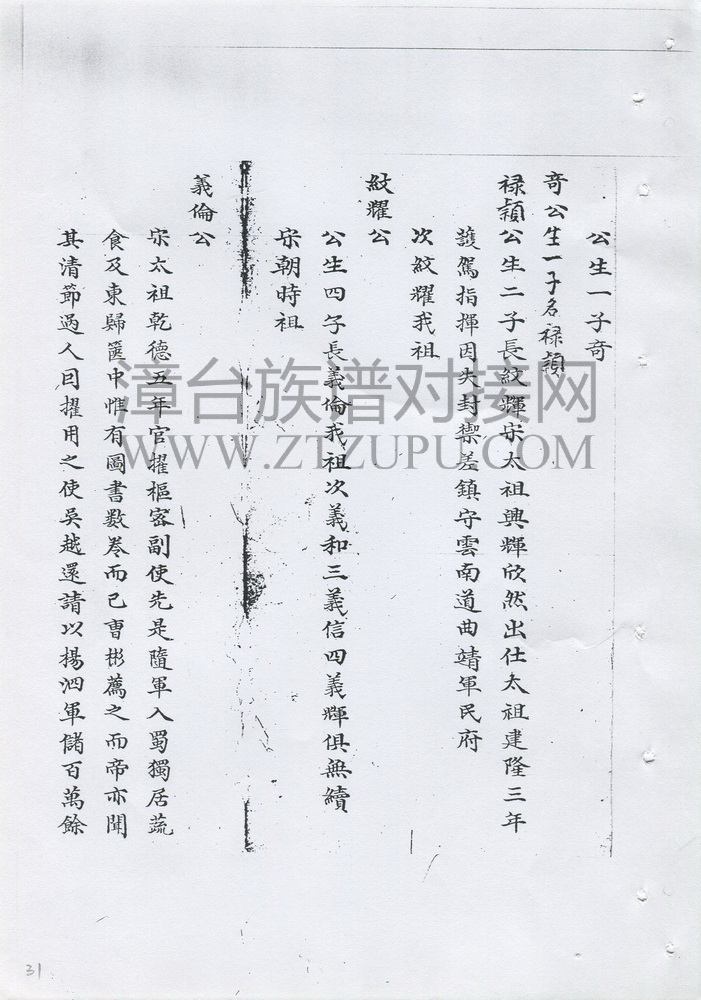 公生一子奇
奇公生一子名禄穎
禄穎公生二子長紋輝宋太祖興輝欣然出仕太祖建隆三年
護駕指揮因失封禦差鎮守雲南道曲靖軍民府
次紋耀我祖
紋耀公
公生四子長義倫我祖次義和三義信四義輝俱無續
宋朝時祖
義倫公
宋太祖乾德五年官擢樞密副使先是隨軍入蜀獨居蔬
食及東歸篋中惟有圖書数巻而已曹彬薦之而帝亦聞
其清節過人因擢用之使吳越還請以揚泗軍儲百萬餘
漳台族谱对接网
WWW.ZTZUPU.COM
31